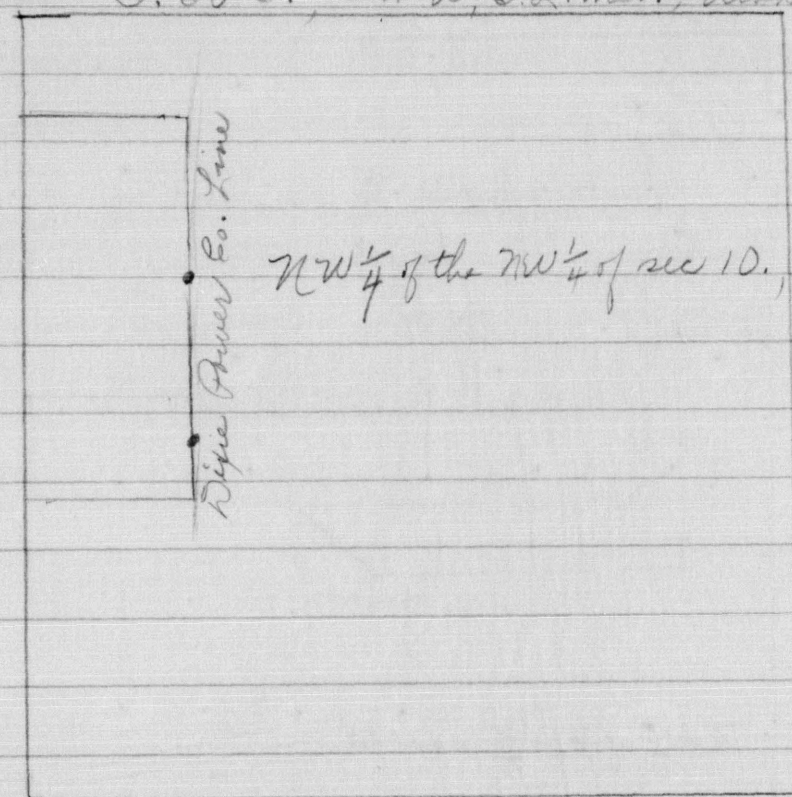 Dixie Power Co. Line
NW 1/4 of the NW 1/4 of sec 10.,